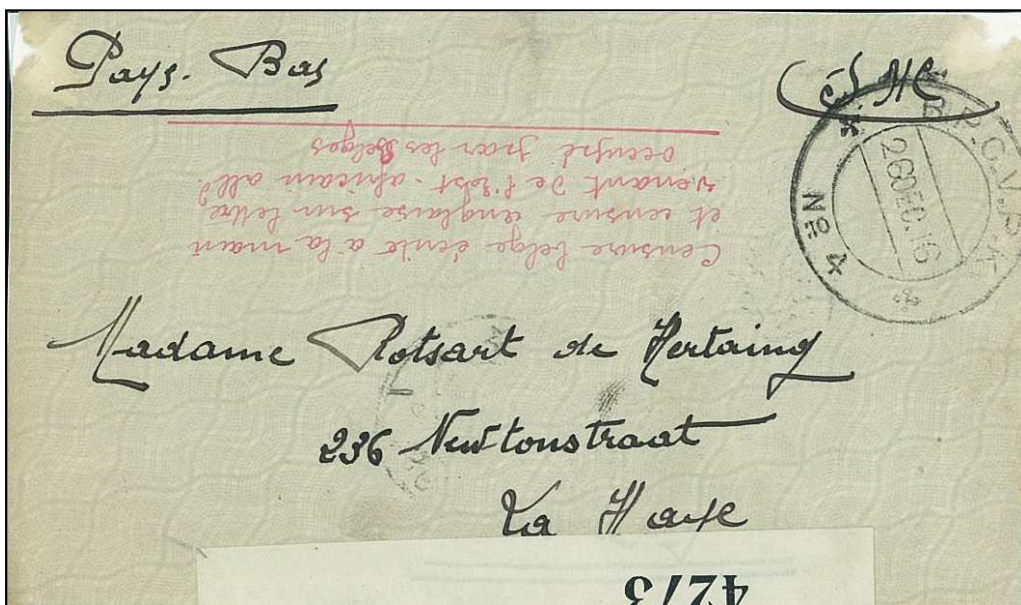 Pays-Bas
(S.M)
B.P.C.V.P.K.
28DEC.16
No 4
Censure belge écrite à la main
et censure anglaise sur lettre
venant de l'Est-africain all.d
occupé par les Belges
Madame Rotsart de Hertaing
236 Newtonstraat
La Haye
4273